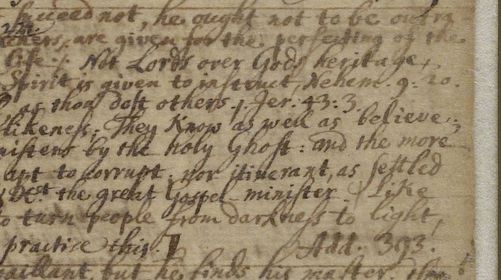 succeed not, he ought not to be outra
achers, are given for the perfecting of the
life. Not Lords over Gods heritage,
Spirit is given to instruct, Nehem. 9. 20.
as thou dost others. Jer. 43. 3.
likeness. They know as well as believe.
nisters by the holy Ghost: and the more
apt to corrupt. nor itinerant, as settled
the great Gospel-minister. Like
to turn people from darkness to light,
practise this. Add. 393.
vaillant, but he finds his master